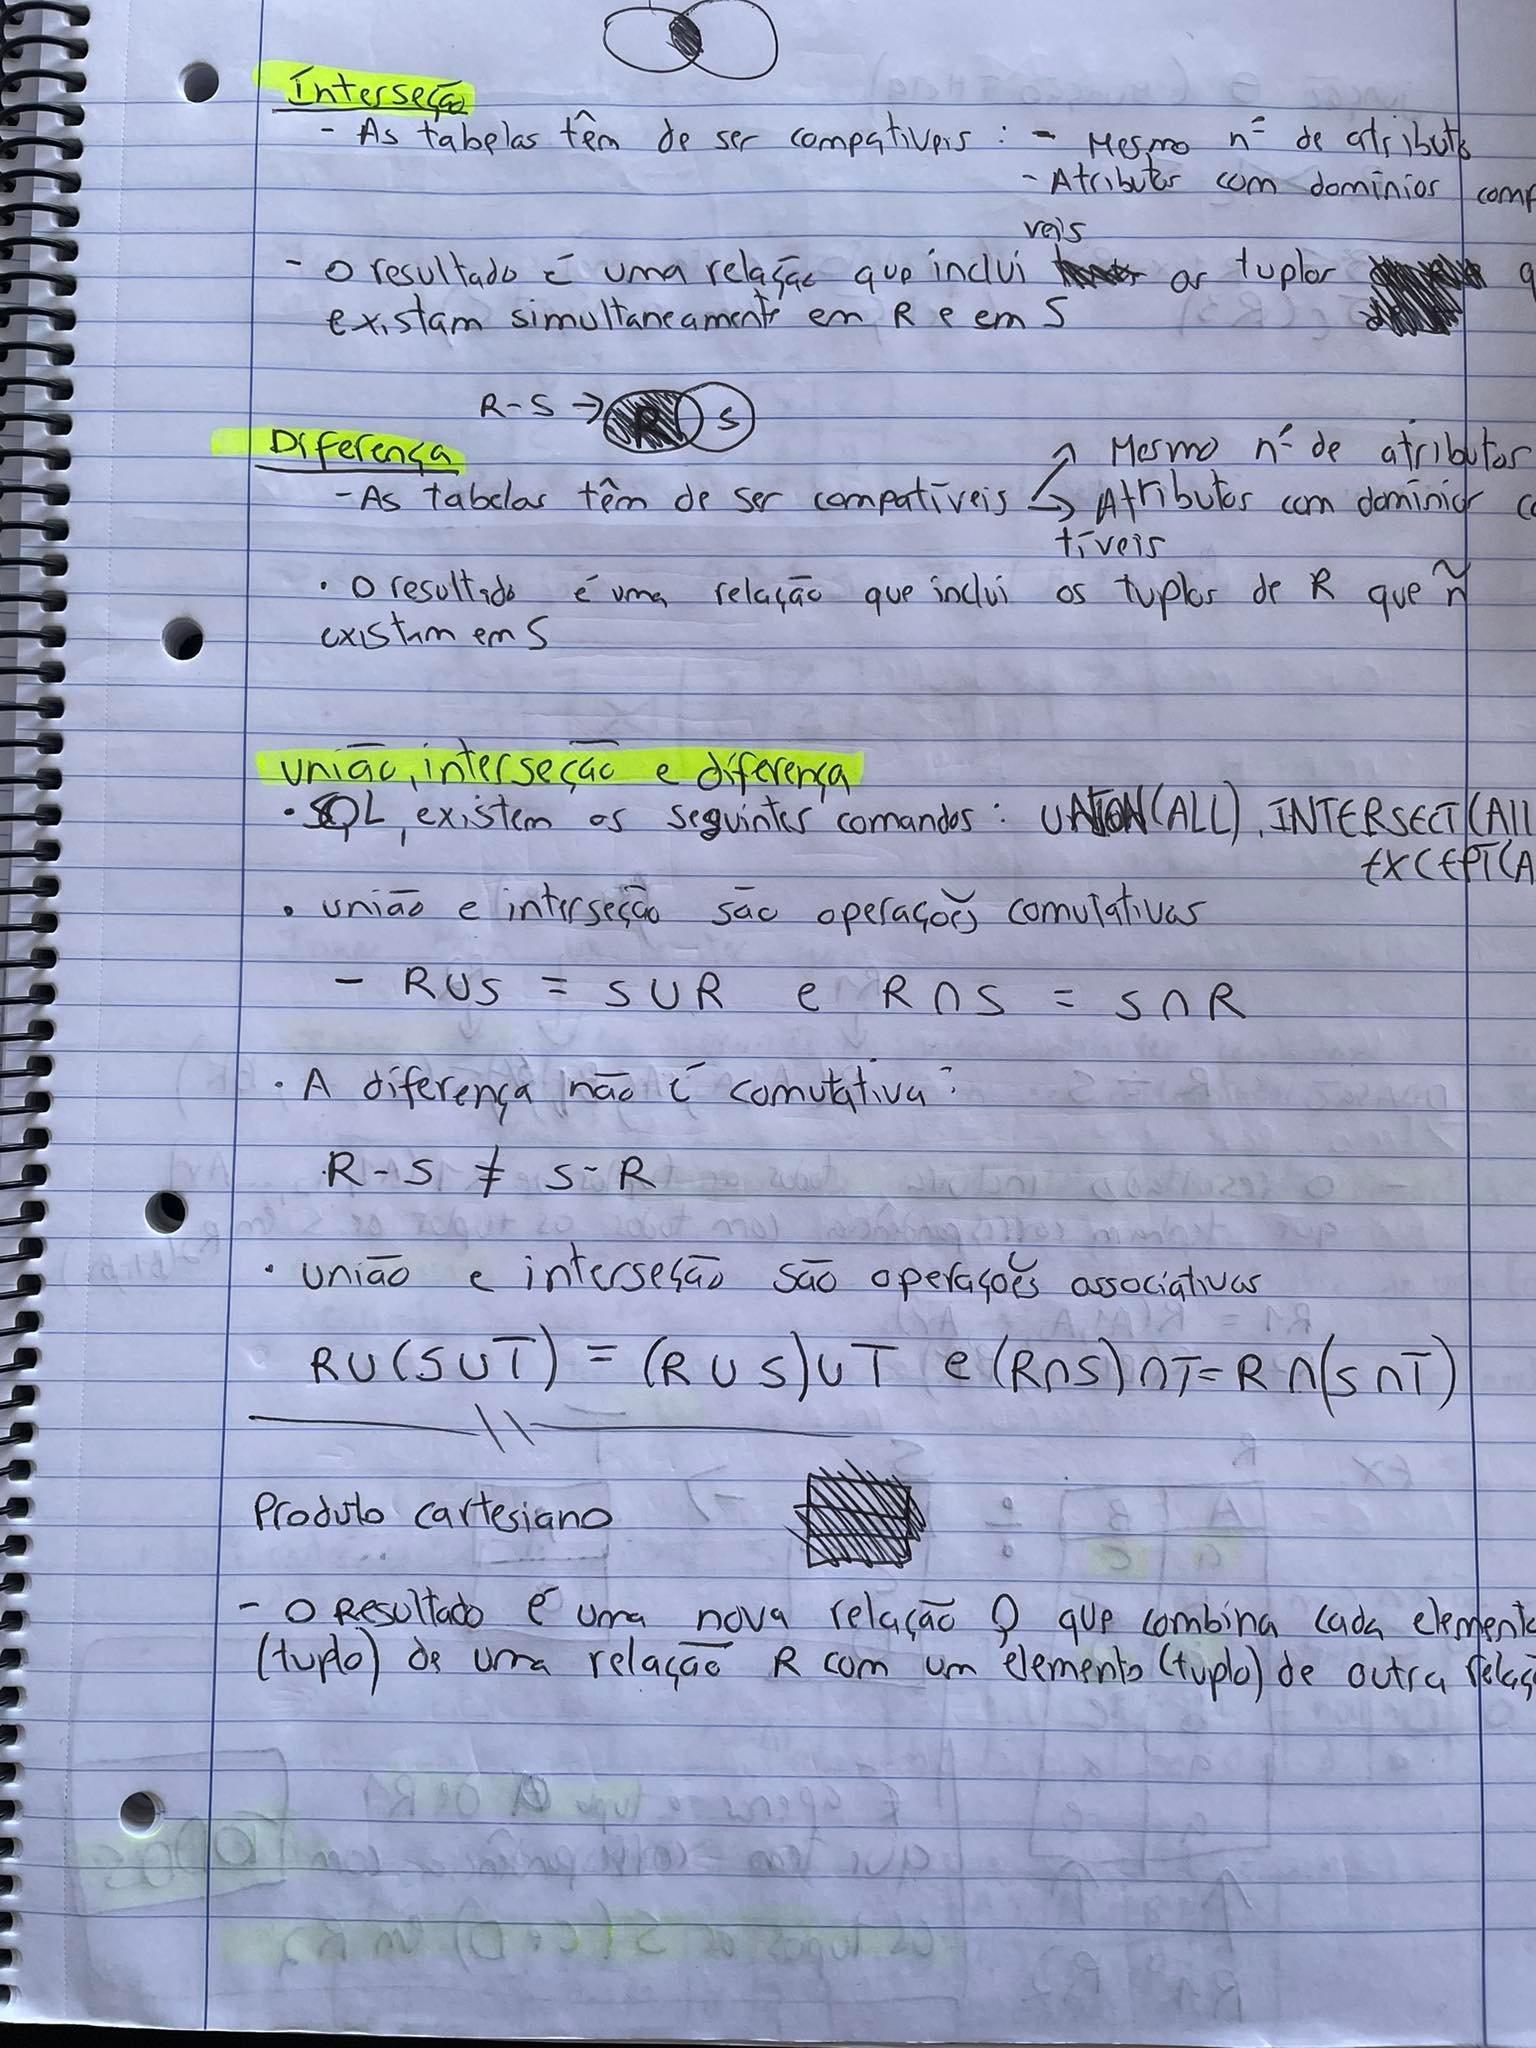 Interseção
- As tabelas têm de ser compativeis : - Mesmo nº de atributos
- Atributos com domínios comp
veis
- O resultado é uma relação que inclui os tuplos q
existam simultaneamente em R e em S
R-S → R S
Diferença
Mesmo nº de atributos
- As tabelas têm de ser compatíveis → Atributos com domínios co
tíveis
· O resultado é uma relação que inclui os tuplos de R que ñ
existam em S
união, interseção e diferença
· SQL, existem os seguintes comandos : UNION(ALL), INTERSECT(All
EXCEPT(A
· união e interseção são operações comutativas
- R∪S = S∪R e R∩S = S∩R
· A diferença não é comutativa:
R-S ≠ S-R
· união e interseção são operações associativas
R∪(S∪T) = (R∪S)∪T e (R∩S)∩T = R∩(S∩T)
Produto cartesiano
- O Resultado é uma nova relação Q que combina cada elemento
(tuplo) de uma relação R com um elemento (tuplo) de outra relaç